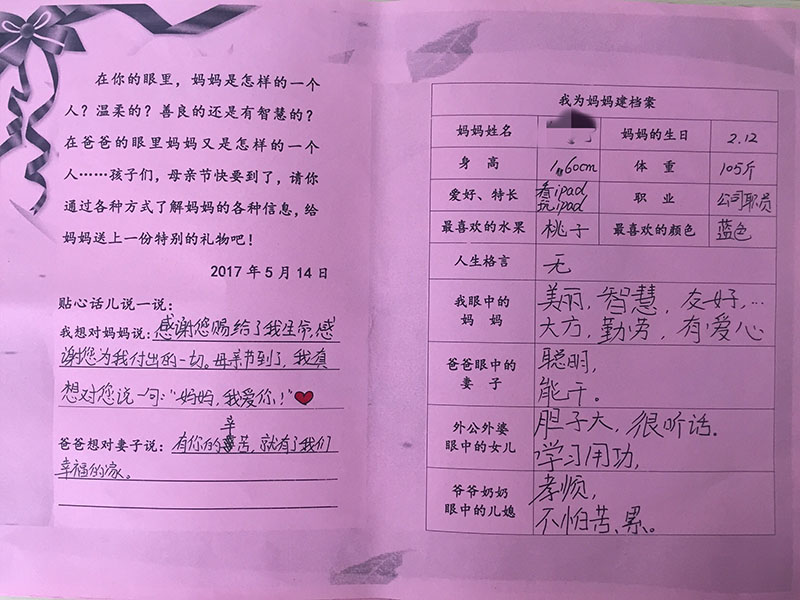 在你的眼里，妈妈是怎样的一个
人？温柔的？善良的还是有智慧的？
在爸爸的眼里妈妈又是怎样的一个
人……孩子们，母亲节快要到了，请你
通过各种方式了解妈妈的各种信息，给
妈妈送上一份特别的礼物吧！
2017年5月14日
贴心话儿说一说：
我想对妈妈说：感谢您赐给了我生命，感
谢您为我付出的一切。母亲节到了，我真
想对您说一句："妈妈，我爱你！"
爸爸想对妻子说：有你的辛苦，就有了我们
幸福的家。
我为妈妈建档案
妈妈姓名 妈妈的生日 2.12
身高 1.60cm 体重 105斤
爱好、特长 看ipad 玩ipad 职业 公司职员
最喜欢的水果 桃子 最喜欢的颜色 蓝色
人生格言 无
我眼中的妈妈 美丽，智慧，友好，…
大方，勤劳，有爱心
爸爸眼中的妻子 聪明，
能干。
外公外婆眼中的女儿 胆子大，很听话.
学习用功，
爷爷奶奶眼中的儿媳 孝顺，
不怕苦、累。